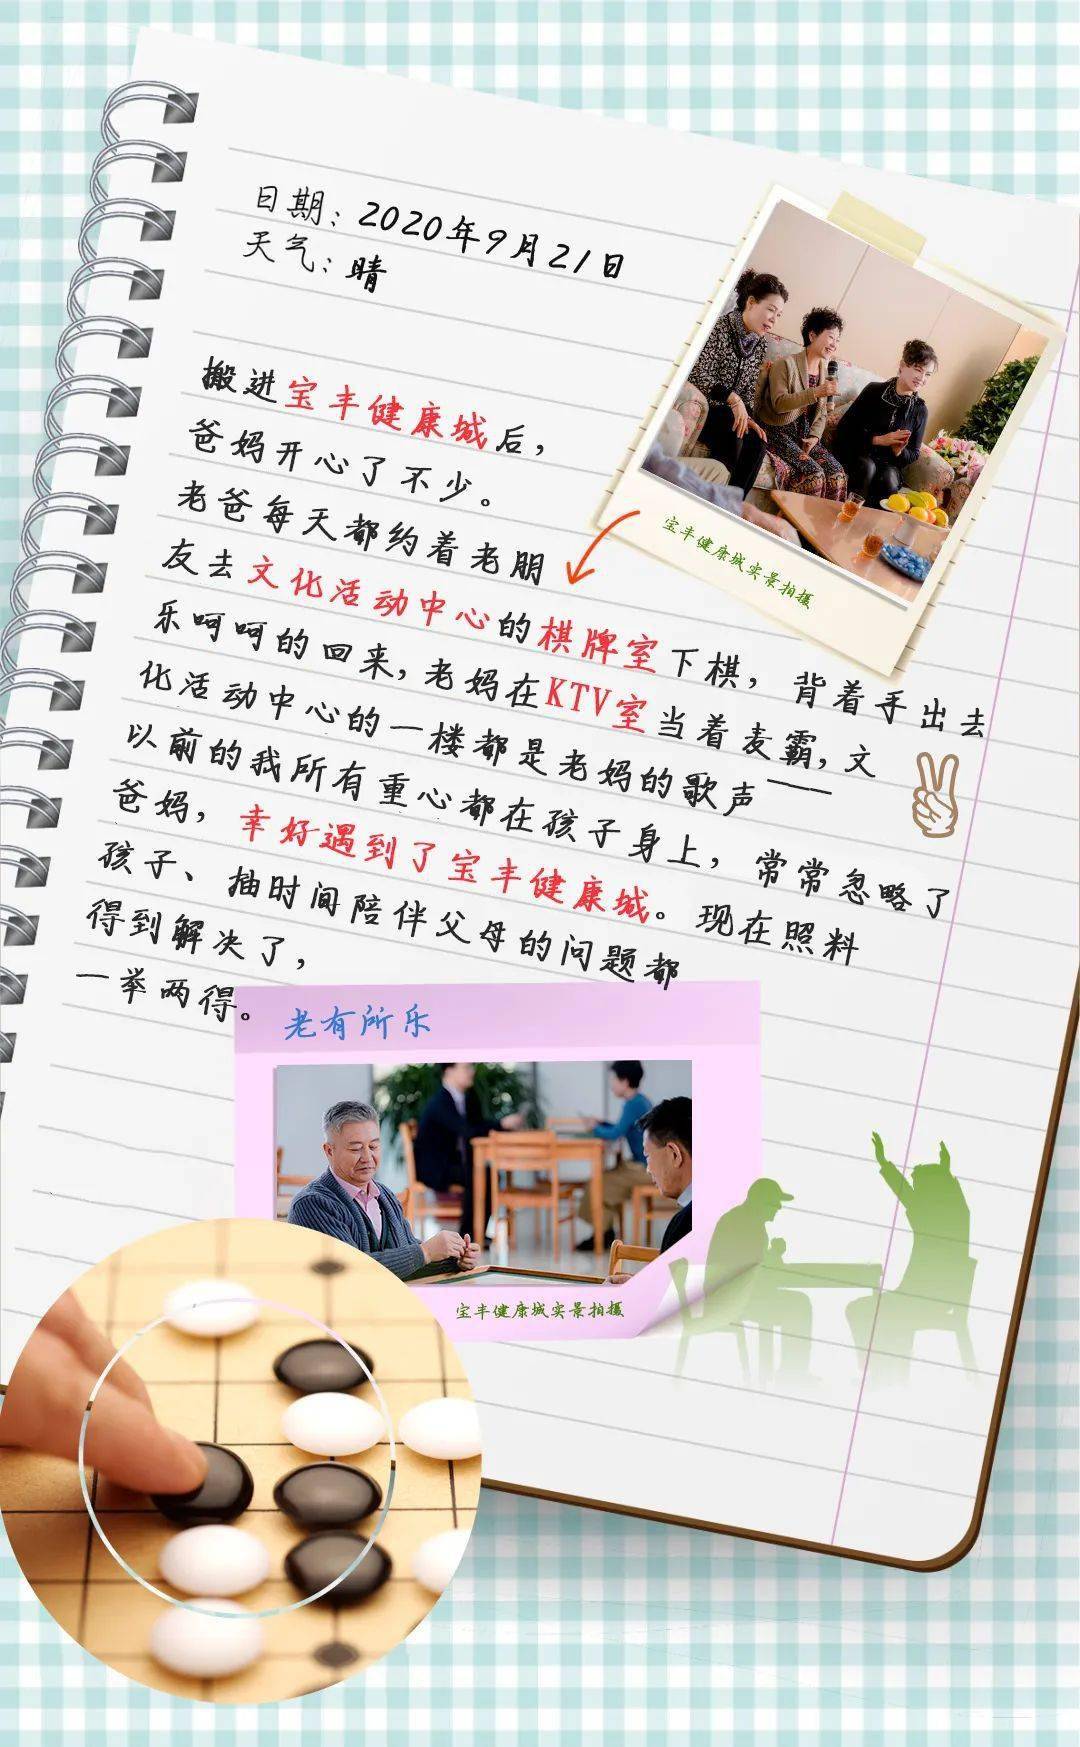 日期：2020年9月21日
天气：晴
搬进宝丰健康城后，
爸妈开心了不少。
老爸每天都约着老朋
友去文化活动中心的棋牌室下棋，背着手出去
乐呵呵的回来，老妈在KTV室当着麦霸，文
化活动中心的一楼都是老妈的歌声——
以前的我所有重心都在孩子身上，常常忽略了
爸妈，幸好遇到了宝丰健康城。现在照料
孩子、抽时间陪伴父母的问题都
得到解决了，
一举两得。
宝丰健康城实景拍摄
老有所乐
宝丰健康城实景拍摄